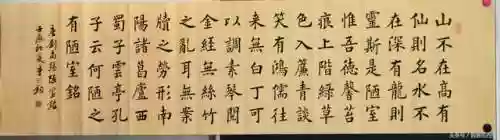 山不在高有
仙則名水不
在深有龍則
靈斯是陋室
惟吾德馨苔
痕上階綠草
色入簾青談
笑有鴻儒往
來無白丁可
以調素琴閱
金經無絲竹
之亂耳無案
牘之勞形南
陽諸葛廬西
蜀子雲亭孔
子云何陋之
有陋室銘
唐劉禹錫陋室銘